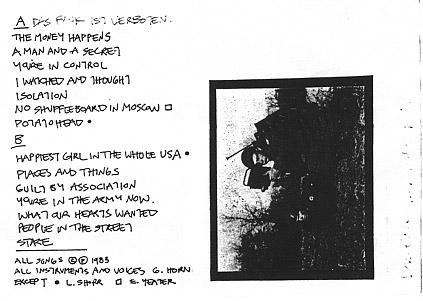 A DAS FUNK IST VERBOTEN.
THE MONEY HAPPENS
A MAN AND A SECRET
YOU'RE IN CONTROL
I WATCHED AND THOUGHT
ISOLATION
NO SHUFFLEBOARD IN MOSCOW □
POTATO HEAD •
B
HAPPIEST GIRL IN THE WHOLE USA •
PLACES AND THINGS
GUILT BY ASSOCIATION
YOU'RE IN THE ARMY NOW.
WHAT OUR HEARTS WANTED
PEOPLE IN THE STREET
STARE
ALL SONGS © ℗ 1983
ALL INSTRUMENTS AND VOICES G. HORN.
EXCEPT • L. SHIRR □ E. YEATER